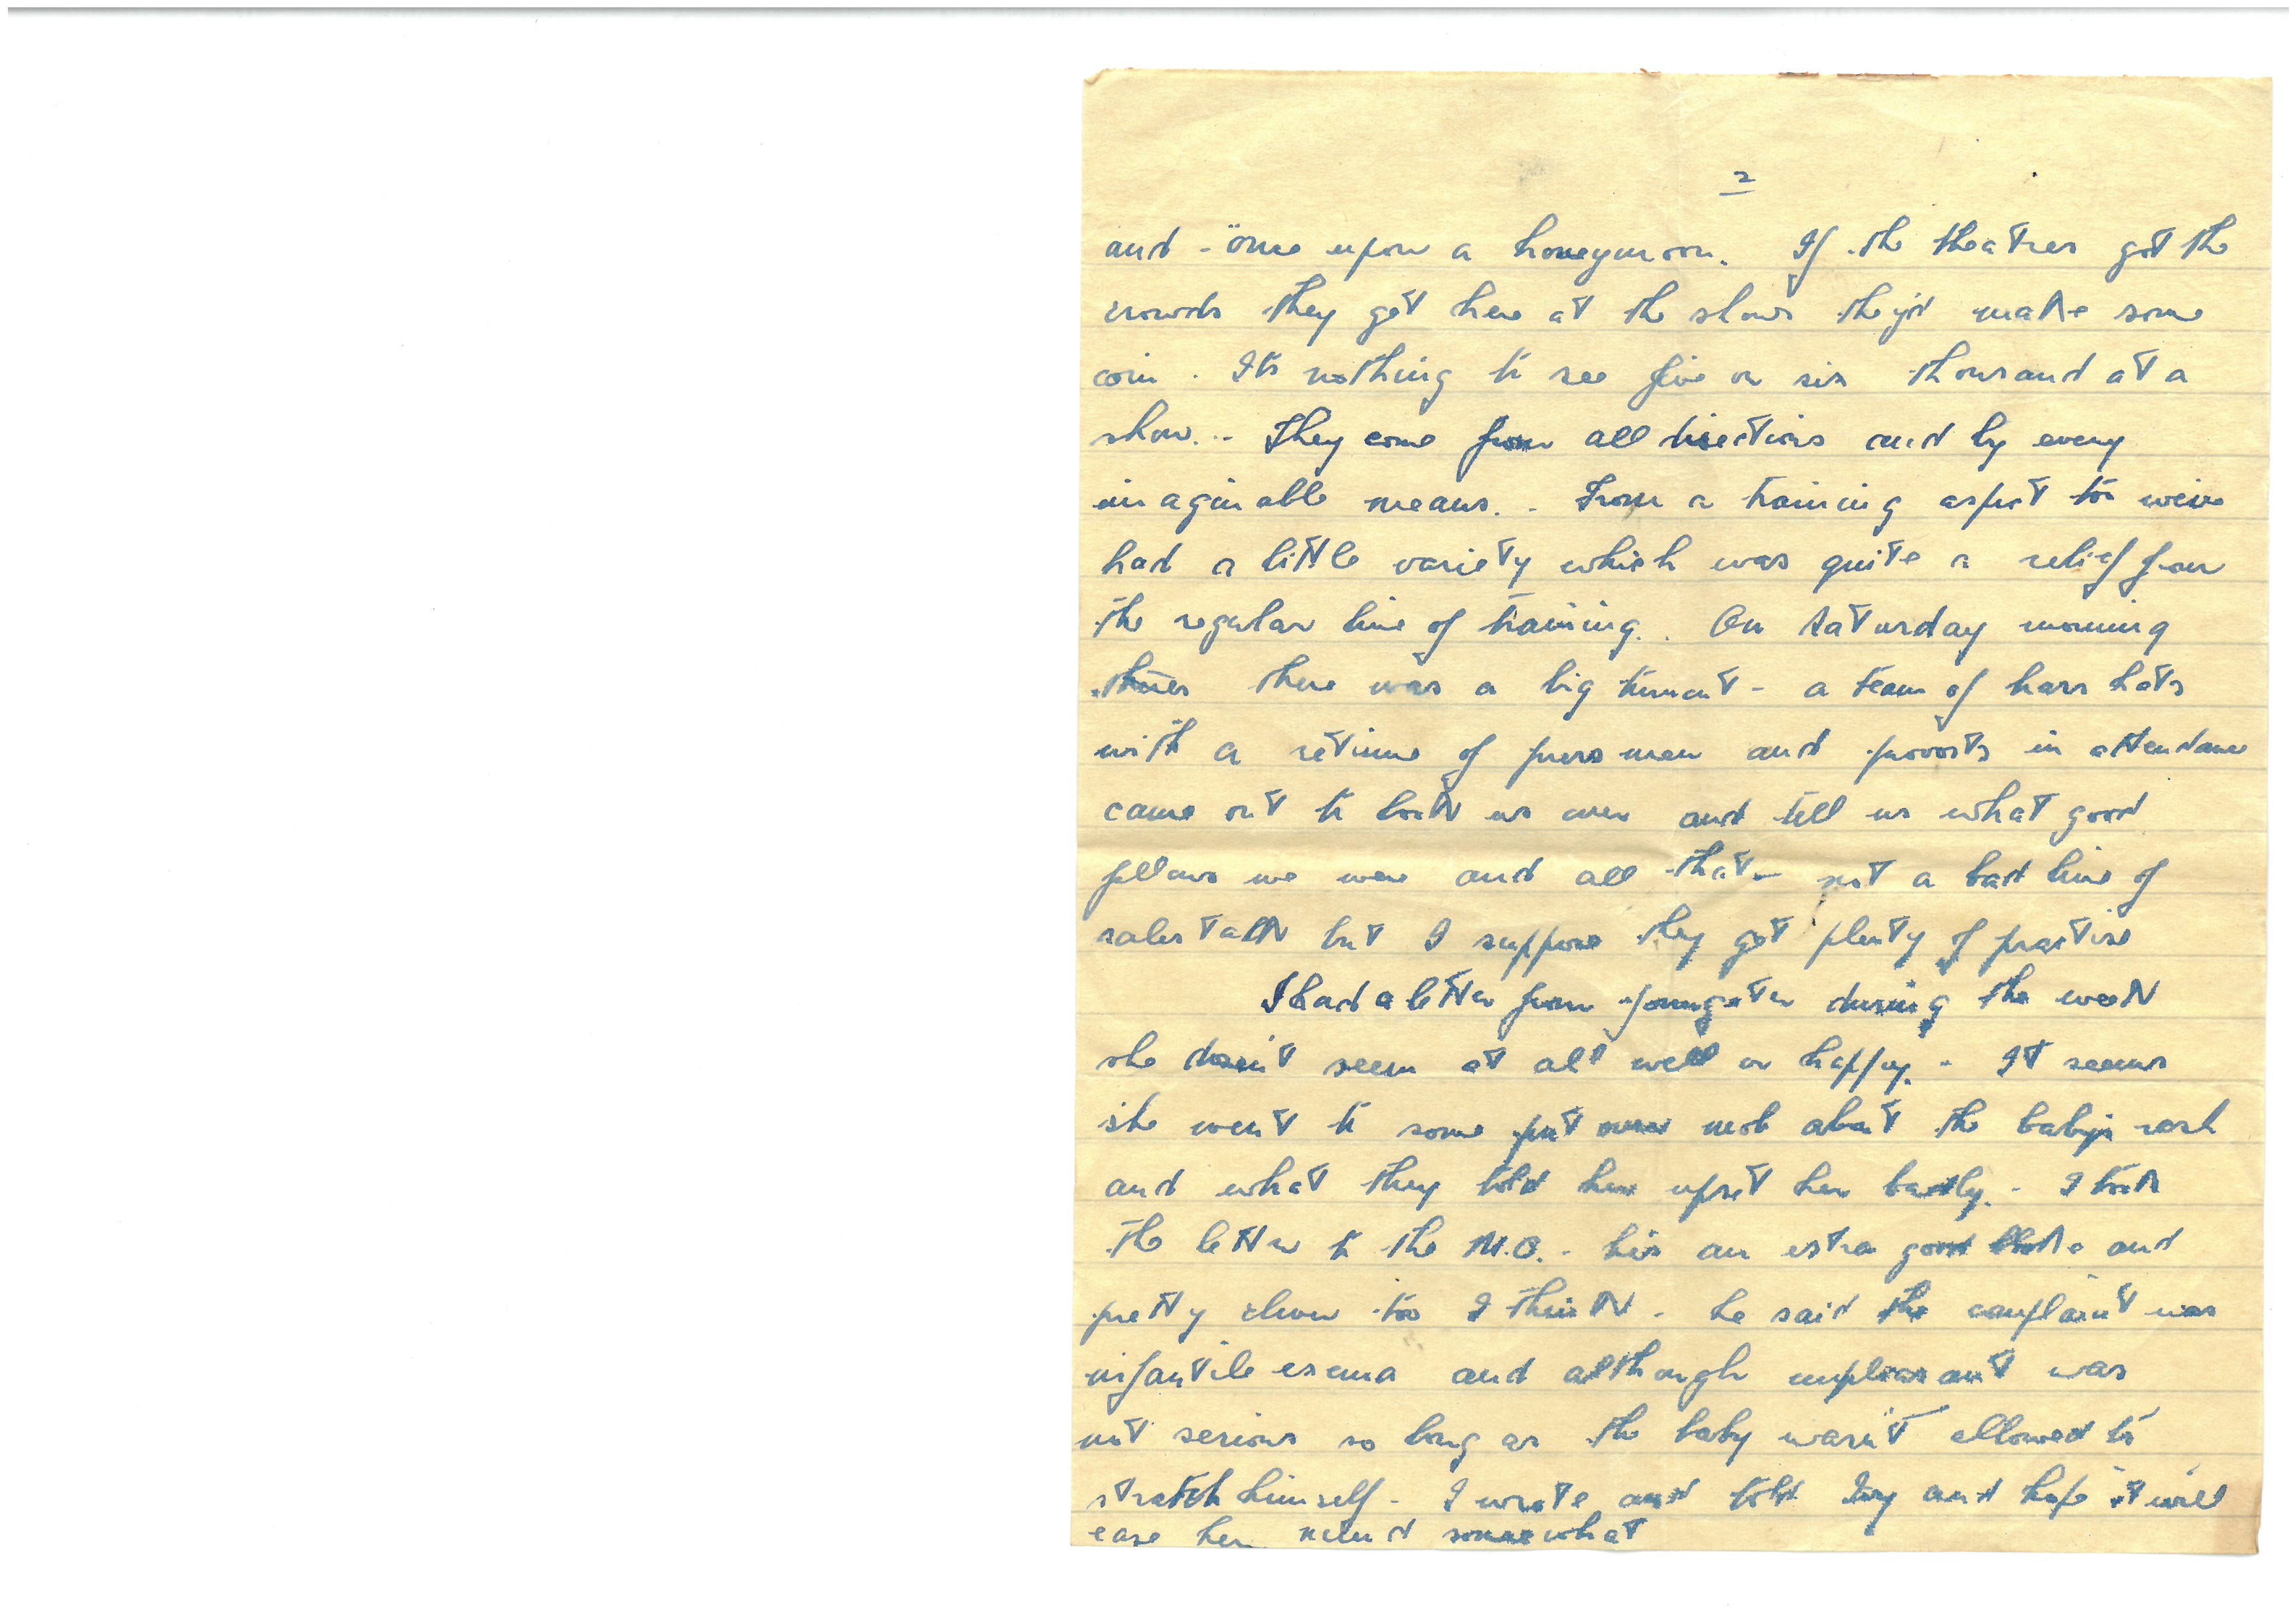 2
and - "Once upon a honeymoon. If the theatres got the
crowds they get here at the shows they'd make some
coin. Its nothing to see five or six thousand at a
show. - They come from all directions and by every
imaginable means. - From a training aspect too weve
had a little variety which was quite a relief from
the regular line of training. On Saturday morning
there was a big turnout - a team of brass hats
with a retinue of press men and provosts in attendance
came out to look us over and tell us what good
fellows we were and all that - not a bad line of
sales talk but I suppose they get plenty of practise
I had a letter from youngster during the week
she doesn't seem at all well or happy. - It seems
she went to some mob about the babys rash
and what they told her upset her badly. - I took
the letter to the M.O. - hes an extra good bloke and
pretty clever too I think - he said the complaint was
infantile exema and although unpleasant was
not serious so long as the baby wasn't allowed to
stratch himself - I wrote and told Ivy and hope it will
ease her mind somewhat